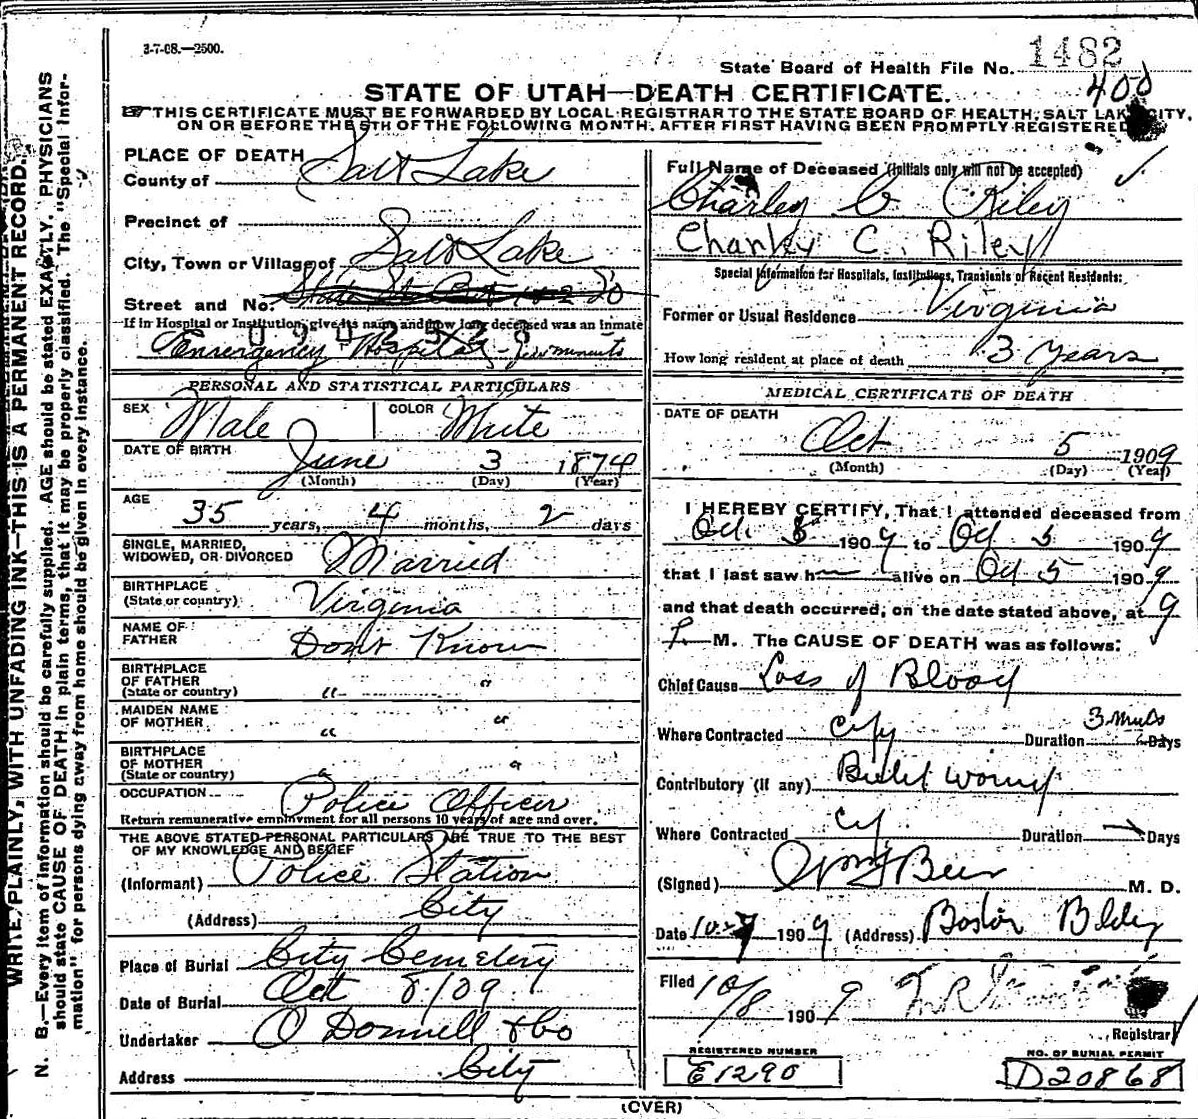 3-7-08.—2500.
State Board of Health File No. 1482
400
STATE OF UTAH—DEATH CERTIFICATE.
THIS CERTIFICATE MUST BE FORWARDED BY LOCAL REGISTRAR TO THE STATE BOARD OF HEALTH, SALT LAKE CITY,
ON OR BEFORE THE 5TH OF THE FOLLOWING MONTH, AFTER FIRST HAVING BEEN PROMPTLY REGISTERED
WRITE PLAINLY, WITH UNFADING INK—THIS IS A PERMANENT RECORD.
N. B.—Every item of information should be carefully supplied. AGE should be stated EXACTLY. PHYSICIANS
should state CAUSE OF DEATH in plain terms, that it may be properly classified. The "Special Infor-
mation" for persons dying away from home should be given in every instance.
PLACE OF DEATH
County of Salt Lake
Precinct of
City, Town or Village of Salt Lake
Street and No. State St.
If in Hospital or Institution, give its name and how long deceased was an inmate
Emergency Hospital - few minuets
PERSONAL AND STATISTICAL PARTICULARS
SEX Male COLOR White
DATE OF BIRTH June 3 1874
(Month) (Day) (Year)
AGE 35 years, 4 months, 2 days
SINGLE, MARRIED,
WIDOWED, OR DIVORCED Married
BIRTHPLACE
(State or country) Virginia
NAME OF
FATHER Dont Know
BIRTHPLACE
OF FATHER
(State or country) " "
MAIDEN NAME
OF MOTHER " "
BIRTHPLACE
OF MOTHER
(State or country) " "
OCCUPATION Police Officer
Return remunerative employment for all persons 10 years of age and over.
THE ABOVE STATED PERSONAL PARTICULARS ARE TRUE TO THE BEST
OF MY KNOWLEDGE AND BELIEF
(Informant) Police Station
(Address) City
Place of Burial City Cemetery
Date of Burial Oct 8/09
Undertaker O Donnell & Co
Address City
Full Name of Deceased (Initials only will not be accepted)
Charley C Riley
Charley C. Riley
Special Information for Hospitals, Institutions, Transients or Recent Residents:
Former or Usual Residence Virginia
How long resident at place of death 3 years
MEDICAL CERTIFICATE OF DEATH
DATE OF DEATH
Oct 5 1909
(Month) (Day) (Year)
I HEREBY CERTIFY, That I attended deceased from
Oct. 5 1909 to Oct 5 1909
that I last saw h alive on Oct 5 1909
and that death occurred, on the date stated above, at 9
P M. The CAUSE OF DEATH was as follows:
Chief Cause Loss of Blood
Where Contracted City Duration 3 Days
Contributory (if any) Bullet wound
Where Contracted City Duration Days
(Signed) Beer M. D.
Date 10-7 1909 (Address) Boston Bldg
Filed 10/8 1909
Registrar
REGISTERED NUMBER
E1290
NO. OF BURIAL PERMIT
D20868
(OVER)